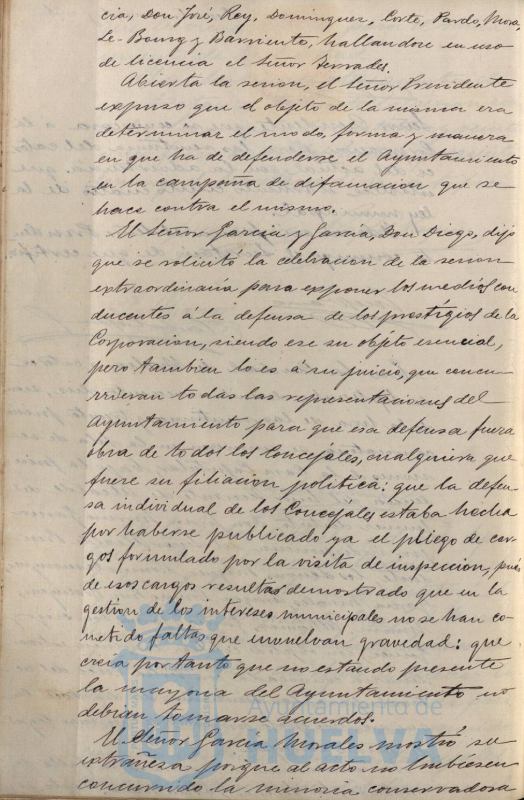 cia, Don José, Rey, Dominguez, Corte, Pardo, Mora,
Le-Bourg y Barriento, hallandose en uso
de licencia el Señor Terrades.
Abierta la sesion, el Señor Presidente
expuso que el objeto de la misma era
determinar el modo, forma y manera
en que ha de defenderse el Ayuntamiento
en la campaña de difamacion que se
hace contra el mismo.
El Señor Garcia y Garcia, Don Diego, dijo
que se solicitó la celebracion de la sesion
extraordinaria para exponer los medios con
ducentes á la defensa de los prestigios de la
Corporacion, siendo ese su objeto esencial,
pero tambien lo es á su juicio, que concu-
rrieran todas las representaciones del
Ayuntamiento para que esa defensa fuera
obra de todos los Concejales, cualquiera que
fuere su filiacion politica: que la defen-
sa individual de los Concejales estaba hecha
por haberse publicado ya el pliego de car-
gos formulado por la visita de inspeccion, pues
de esos cargos resultas demostrado que en la
gestion de los intereses municipales no se han co-
metido faltas que envuelvan gravedad: que
creia por tanto que no estando presente
la mayoria del Ayuntamiento no
debian tomarse acuerdos.
El Señor Garcia Morales mostró su
extrañeza porque al acto no hubiesen
concurrido la minoria conservadora
Ayuntamiento de
HUELVA